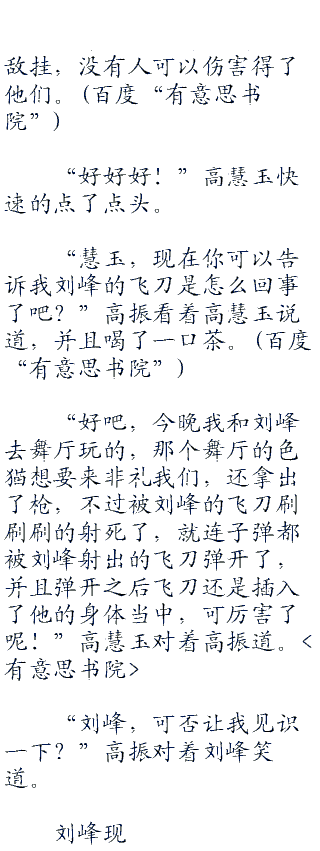 敌挂，没有人可以伤害得了
他们。(百度“有意思书
院”)
“好好好！”高慧玉快
速的点了点头。
“慧玉，现在你可以告
诉我刘峰的飞刀是怎么回事
了吧？”高振看着高慧玉说
道，并且喝了一口茶。(百度
“有意思书院”)
“好吧，今晚我和刘峰
去舞厅玩的，那个舞厅的色
猫想要来非礼我们，还拿出
了枪，不过被刘峰的飞刀刷
刷刷的射死了，就连子弹都
被刘峰射出的飞刀弹开了，
并且弹开之后飞刀还是插入
了他的身体当中，可厉害了
呢！”高慧玉对着高振道。<
有意思书院>
“刘峰，可否让我见识
一下？”高振对着刘峰笑
道。
刘峰现